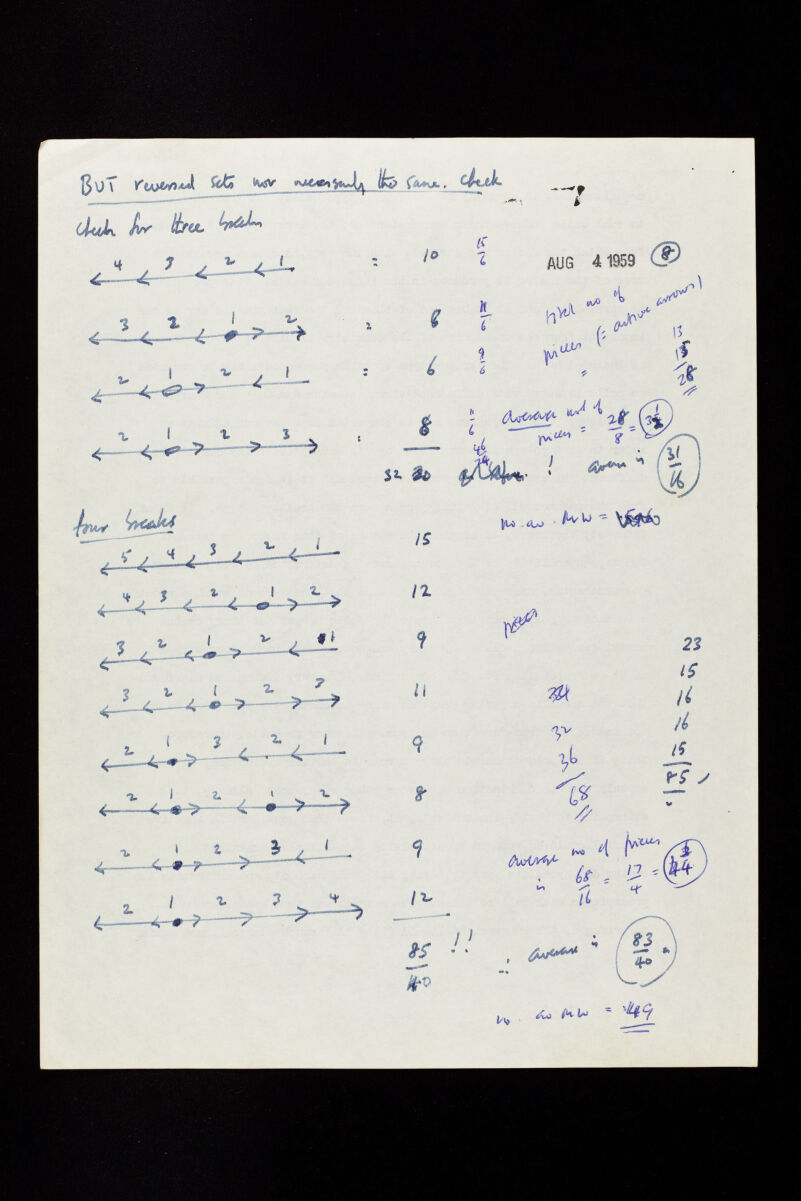 BUT reversed sets nor necessarily the same. Check
Check for three breaks
4 3 2 1 = 10 15/6
AUG 4 1959 8
3 2 1 2 = 8 11/6
total no of
pieces (= active arrows)
13
15
=
28
2 1 2 1 = 6 9/6
2 1 2 3 : 8 11/6
46/24
average no of
pieces = 28/8 = 3 1/2
32 !
average is 31/16
no. av. M.W =
four breaks
5 4 3 2 1 15
4 3 2 1 2 12
pieces
3 2 1 2 1 9
3 2 1 2 3 11
2 1 3 2 1 9
2 1 2 1 2 8
2 1 2 3 1 9
2 1 2 3 4 12
85/40 !!
32
36
68
23
15
16
16
15
85
average no of pieces
is 68/16 = 17/4 = 4 1/4
∴ average is 83/40
no. av M.W = .49